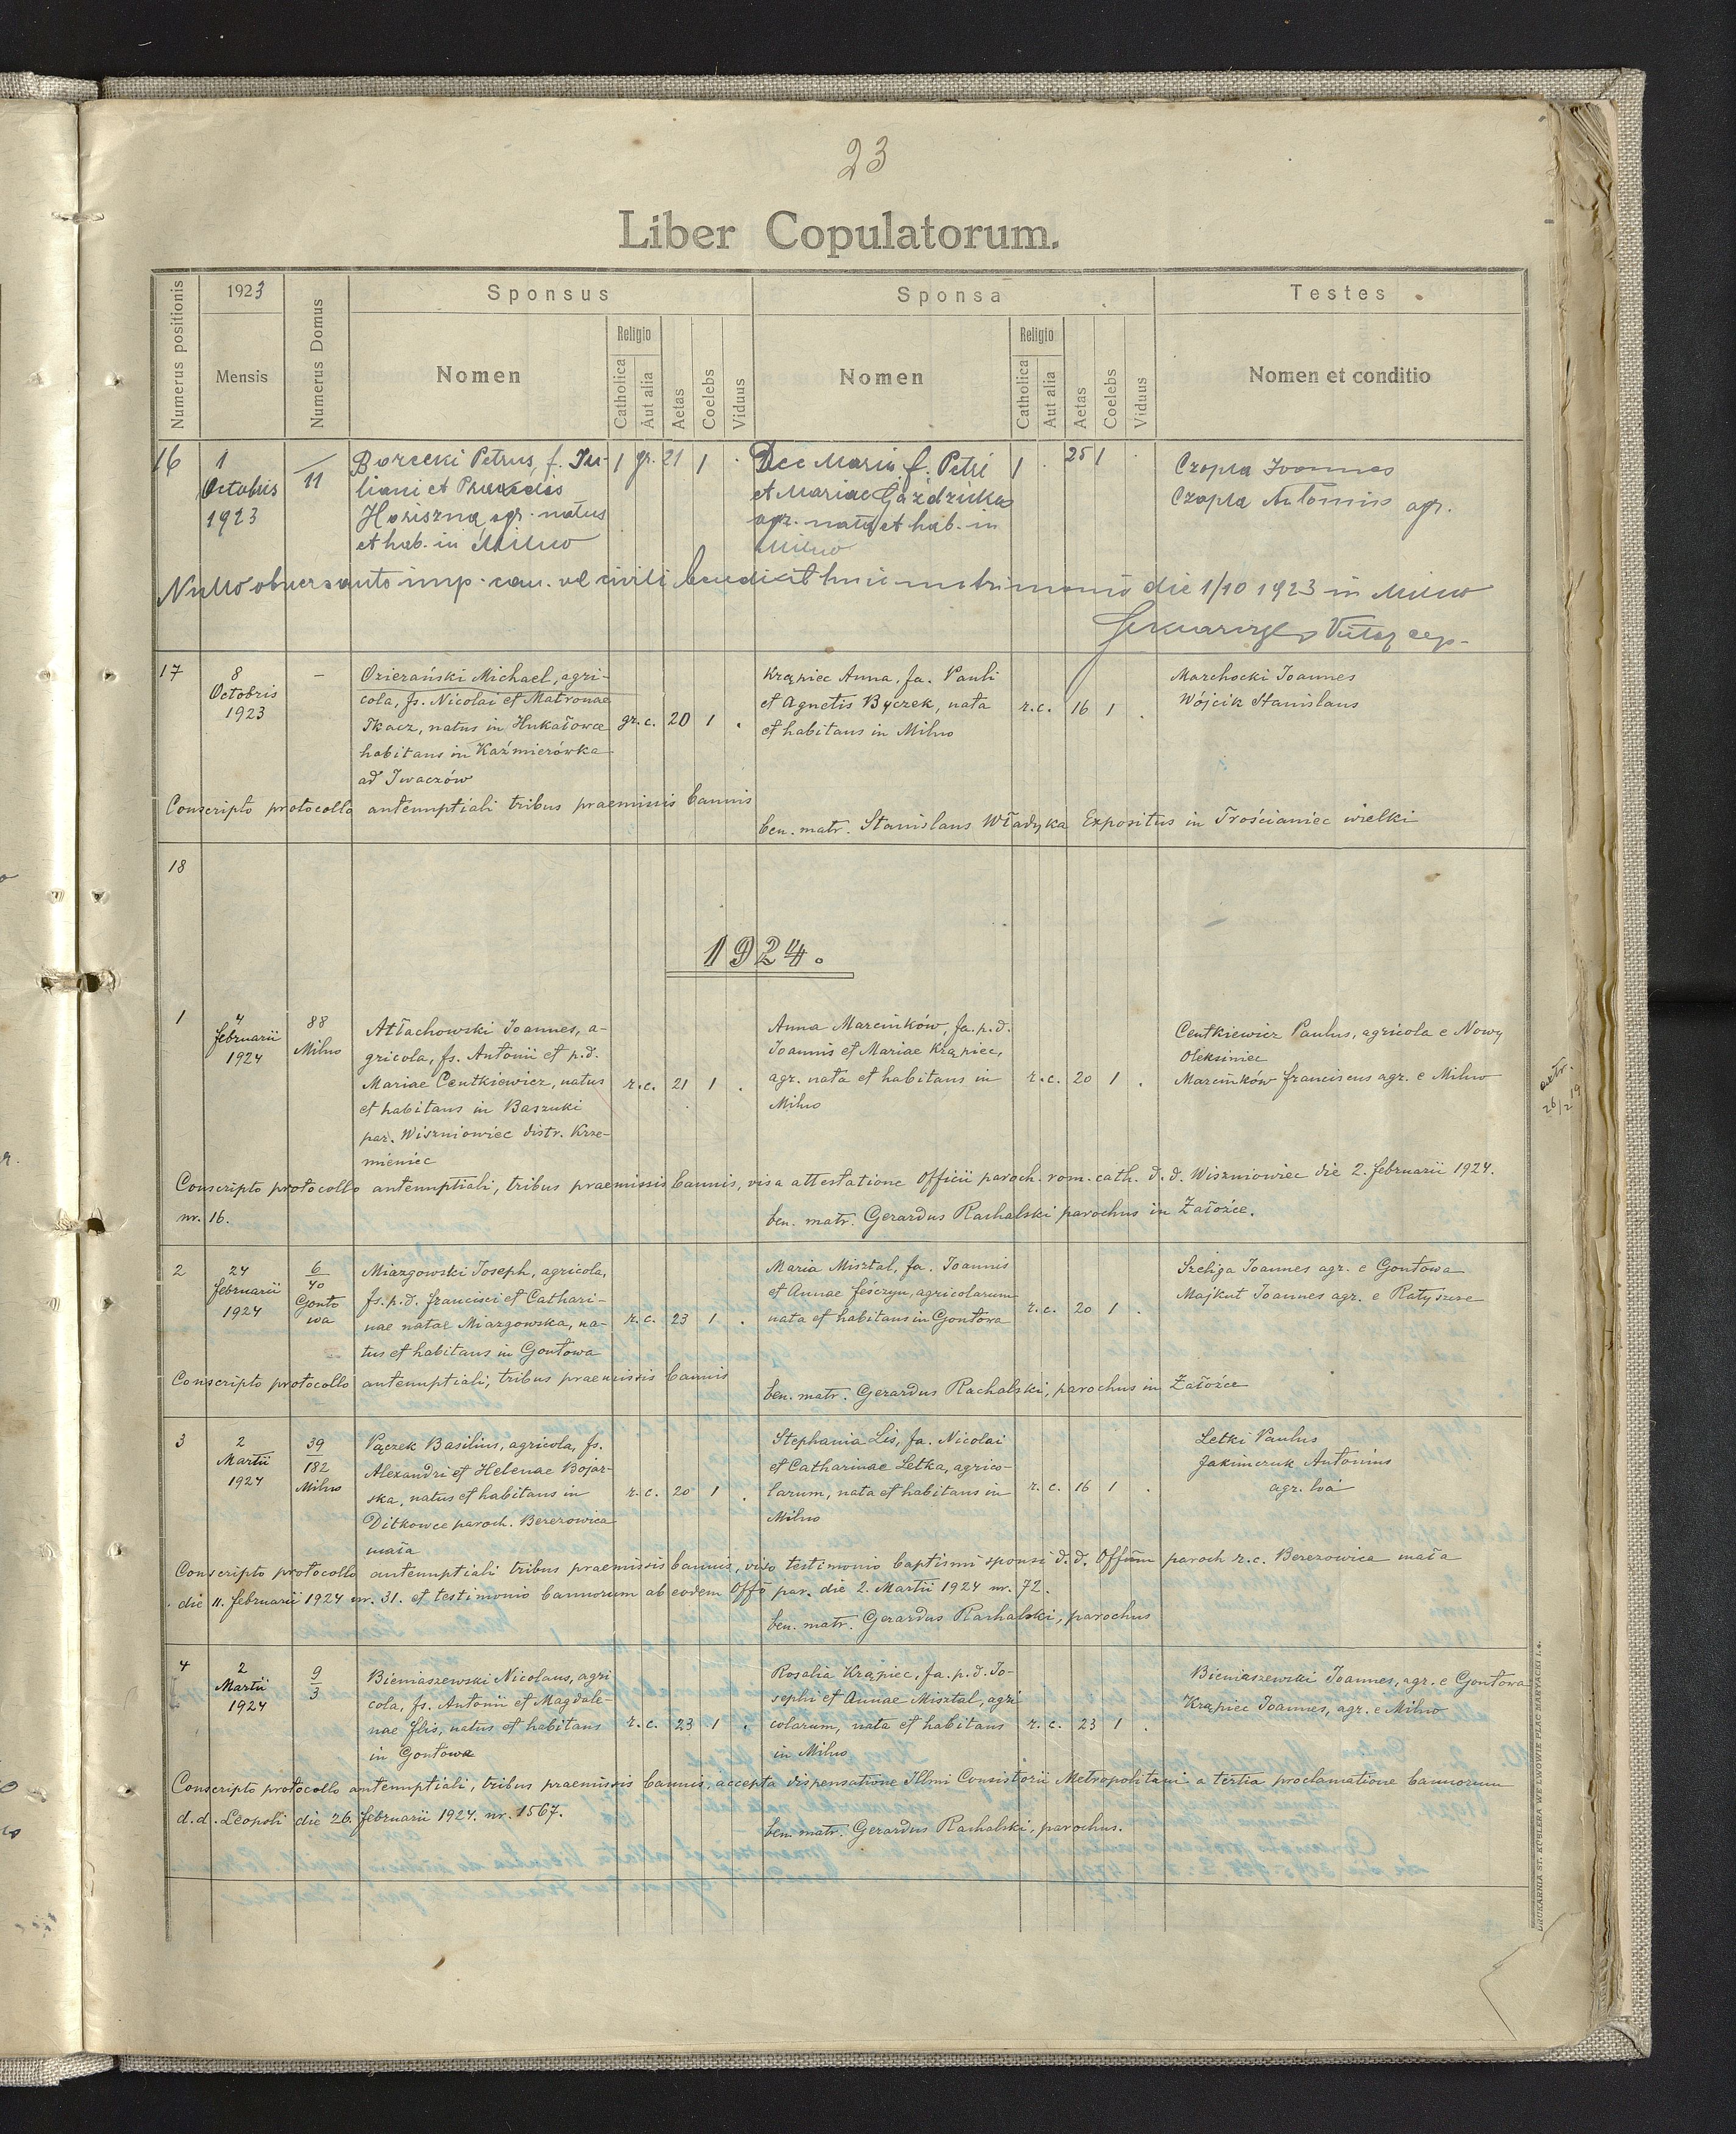 23
Liber Copulatorum.
Numerus positionis
1923
Mensis
Numerus Domus
Sponsus
Nomen
Religio
Catholica
Aut alia
Aetas
Coelebs
Viduus
Sponsa
Nomen
Religio
Catholica
Aut alia
Aetas
Coelebs
Viduus
Testes
Nomen et conditio
16
1
Octobris
1923
11
Borecki Petrus, f. Ju-
liani et
agr. natus
et hab. in Milno
1 gr. 21 1 .
Dec Maria f. Petri
et Mariae
agr. nata et hab. in
Milno
1 . 25 1 .
Czopla Joannes
Czopla Antonius agr.
Nullo obversante imp. can. vel civili benedixit huic matrimonio die 1/10 1923 in Milno
17
8
Octobris
1923
–
Ozierański Michael, agri-
cola, fs. Nicolai et Matronae
Tkacz, natus in Hukałowce
habitans in Kaźmierówka
ad Iwaczów
gr. c. 20 1 .
Krąpiec Anna, fa. Pauli
et Agnetis Byczek, nata
et habitans in Milno
r. c. 16 1 .
Marchocki Joannes
Wójcik Stanislaus
Conscripto protocollo antenuptiali tribus praemissis bannis
ben. matr. Stanislaus Władyka Expositus in Trościaniec wielki
18
1924.
1
4
februarii
1924
88
Milno
Atłachowski Joannes, a-
gricola, fs. Antonii et p.d.
Mariae Centkiewicz, natus
et habitans in Baszuki
par. Wiszniowiec distr. Krze-
mieniec
r. c. 21 1 .
Anna Marcinków, fa. p.d.
Joannis et Mariae Krąpiec,
agr. nata et habitans in
Milno
r. c. 20 1 .
Centkiewicz Paulus, agricola e Nowy
Oleksiniec
Marcinków franciscus agr. e Milno
Conscripto protocollo antenuptiali, tribus praemissis bannis, visa attestatione Officii paroch. rom. cath. d.d. Wiszniowiec die 2. februarii 1924.
nr. 16.
ben. matr. Gerardus Rachalski parochus in Załoźce.
2
24
februarii
1924
6
40
Gonto
wa
Miazgowski Joseph, agricola,
fs. p.d. francisci et Cathari-
nae natae Miazgowska, na-
tus et habitans in Gontowa
r. c. 23 1 .
Maria Misztal, fa. Joannis
et Annae feśczyn, agricolarum
nata et habitans in Gontowa
r. c. 20 1 .
Szeliga Joannes agr. e Gontowa
Majkut Joannes agr. e Ratyszcze
Conscripto protocollo antenuptiali, tribus praemissis bannis
ben. matr. Gerardus Rachalski, parochus in Załoźce
3
2
Martii
1924
39
182
Milno
Pączek Basilius, agricola, fs.
Alexandri et Helenae Bojar-
ska, natus et habitans in
Ditkowce paroch. Berezowica
mała
r. c. 20 1 .
Stephania Lis, fa. Nicolai
et Catharinae Letka, agrico-
larum, nata et habitans in
Milno
r. c. 16 1 .
Letki Paulus
Jakimczuk Antonius
agr. loci
Conscripto protocollo antenuptiali tribus praemissis bannis, viso testimonio baptismi sponsi d.d. Offium paroch r.c. Berezowica mała
die 11. februarii 1924 nr. 31. et testimonio bannorum ab eodem Offo par. die 2. Martii 1924 nr. 72.
ben. matr. Gerardus Rachalski, parochus
4
2
Martii
1924
9
3
Bieniaszewski Nicolaus, agri
cola, fs. Antonii et Magdale-
nae flis, natus et habitans
in Gontowa
r. c. 23 1 .
Rosalia Krąpiec, fa. p.d. Jo-
sephi et Annae Misztal, agri
colarum, nata et habitans
in Milno
r. c. 23 1 .
Bieniaszewski Joannes, agr. e Gontowa
Krąpiec Joannes, agr. e Milno
Conscripto protocollo antenuptiali, tribus praemissis bannis, accepta dispensatione Illmi Consistorii Metropolitani a tertia proclamatione bannorum
d.d. Leopoli die 26. februarii 1924. nr. 1567.
ben. matr. Gerardus Rachalski, parochus.
DRUKARNIA ST. KÜBLERA WE LWOWIE PLAC MARYACKI L 4.